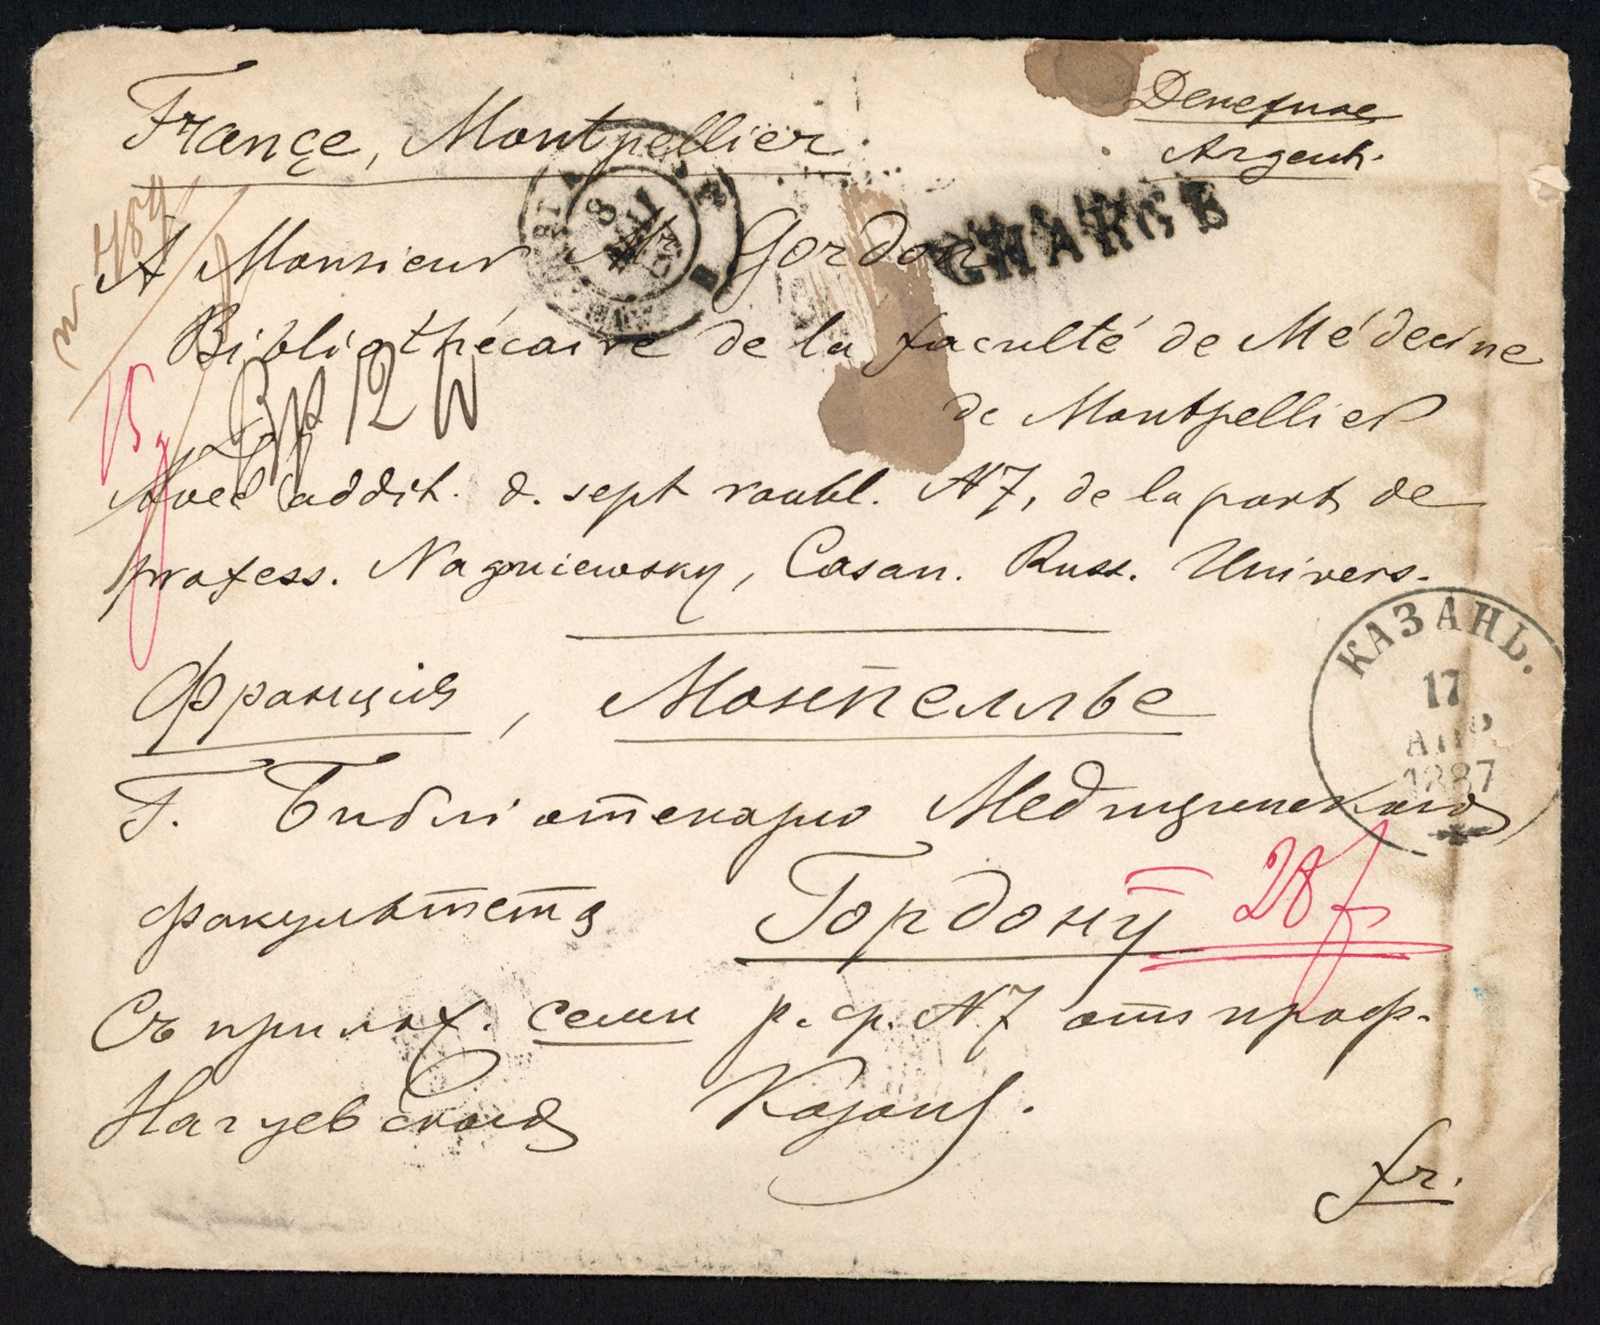 Денежное
Argent.
France, Montpellier.
CHARGÉ
A Monsieur Mr Gordon
Bibliothécaire de la faculté de Médecine
de Montpellier
Avec addit. d. sept roubl. № 7, de la part de
profess. Naguiewsky, Casan. Russ. Univers.
КАЗАНЬ.
17
АПР.
1887
Франція, Монпелльe
Г. Библіотекарю Медицинскаго
факультета Гордону
Съ прилож. семи р. ср. № 7 отъ проф.
Нагуевскаго Казань.
fr.